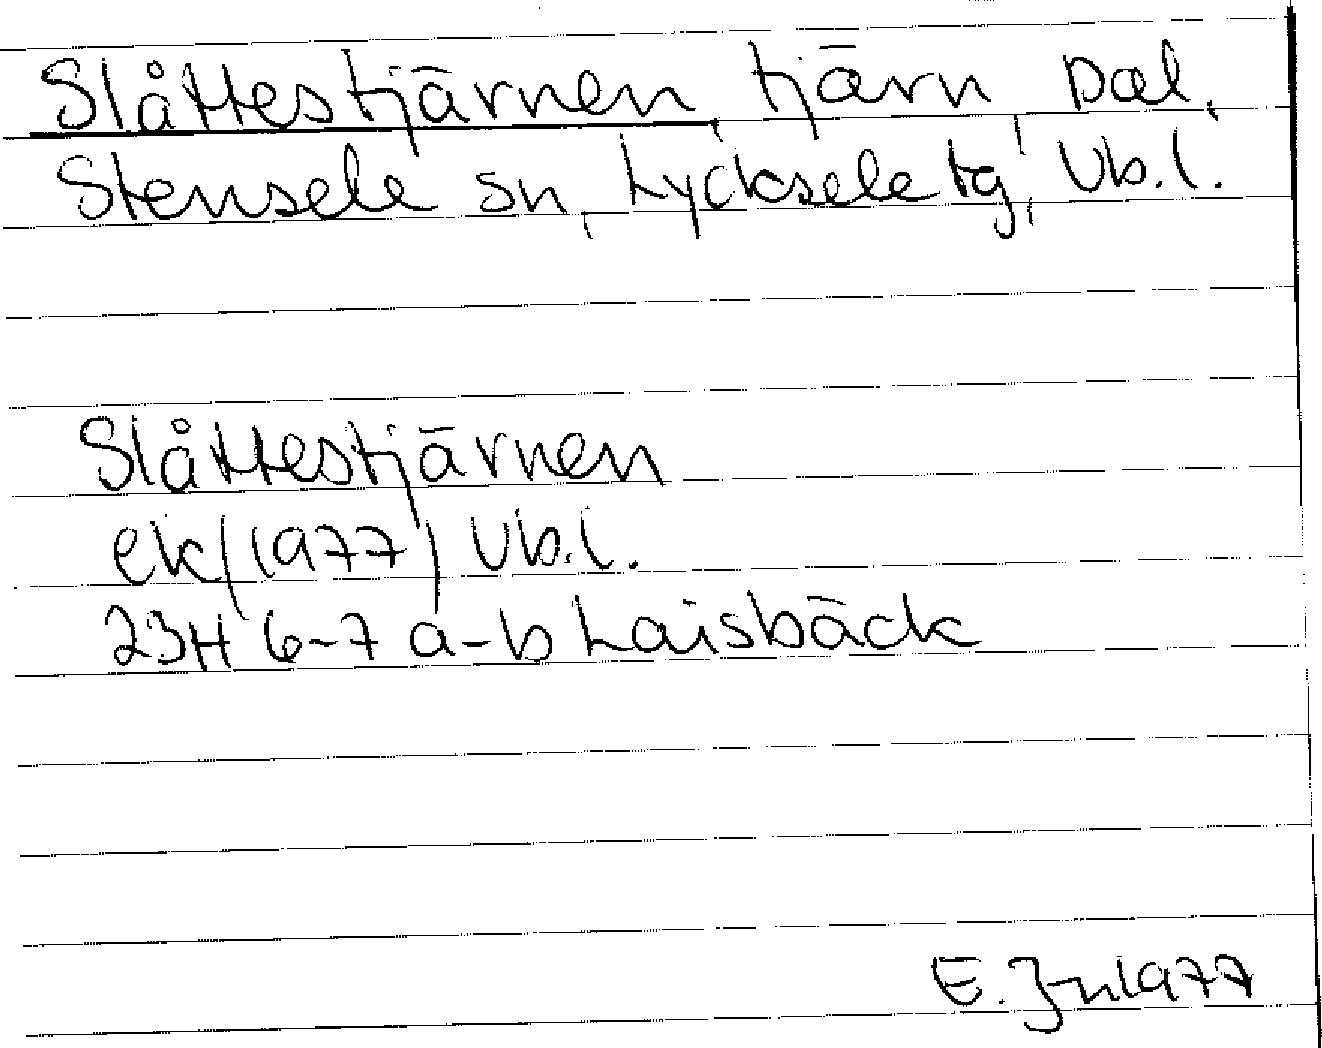 Slåttestjärnen, tjärn Dal,
Stensele sn, Lycksele tg, Vb.l.
Slåttestjärnen
ek(1977) Vb.l.
23H 6-7 a-b Laisbäck
E. 1977